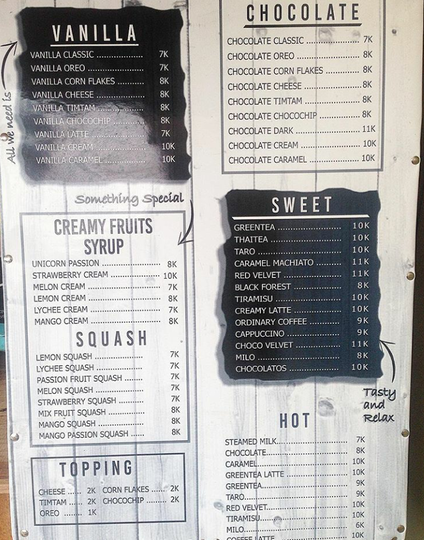 VANILLA
VANILLA CLASSIC ................ 7K
VANILLA OREO .................. 7K
VANILLA CORN FLAKES ........ 8K
VANILLA CHEESE ............... 8K
VANILLA TIMTAM ............... 8K
VANILLA CHOCOCHIP ......... 8K
VANILLA LATTE ................ 7K
VANILLA CREAM ............... 10K
VANILLA CARAMEL ............ 10K
All we need is
Something Special
CREAMY FRUITS
SYRUP
UNICORN PASSION ..................... 8K
STRAWBERRY CREAM ................... 10K
MELON CREAM ....................... 7K
LEMON CREAM ....................... 8K
LYCHEE CREAM ....................... 7K
MANGO CREAM ....................... 8K
SQUASH
LEMON SQUASH ..................... 7K
LYCHEE SQUASH ..................... 7K
PASSION FRUIT SQUASH ........ 7K
MELON SQUASH ..................... 7K
STRAWBERRY SQUASH ............ 7K
MIX FRUIT SQUASH ............... 8K
MANGO SQUASH ..................... 8K
MANGO PASSION SQUASH ...... 8K
TOPPING
CHEESE ...... 2K CORN FLAKES ...... 2K
TIMTAM ...... 2K CHOCOCHIP ...... 2K
OREO ...... 1K
CHOCOLATE
CHOCOLATE CLASSIC .................. 7K
CHOCOLATE OREO ..................... 8K
CHOCOLATE CORN FLAKES ......... 8K
CHOCOLATE CHEESE .................. 8K
CHOCOLATE TIMTAM .................. 8K
CHOCOLATE CHOCOCHIP ............ 8K
CHOCOLATE DARK ..................... 11K
CHOCOLATE CREAM .................. 10K
CHOCOLATE CARAMEL ............... 10K
SWEET
GREENTEA ........................ 10K
THAITEA ........................ 10K
TARO ........................ 10K
CARAMEL MACHIATO ......... 11K
RED VELVET ..................... 11K
BLACK FOREST .................. 8K
TIRAMISU ........................ 10K
CREAMY LATTE .................. 10K
ORDINARY COFFEE ............ 9K
CAPPUCINO ..................... 9K
CHOCO VELVET .................. 11K
MILO ........................ 8K
CHOCOLATOS .................. 10K
Tasty
and
Relax
HOT
STEAMED MILK........................ 7K
CHOCOLATE........................ 8K
CARAMEL........................ 10K
GREENTEA LATTE .................. 10K
GREENTEA........................ 9K
TARO........................ 9K
RED VELVET........................ 10K
TIRAMISU........................ 10K
MILO........................ 6K
COFFEE LATTE ..................... 10K